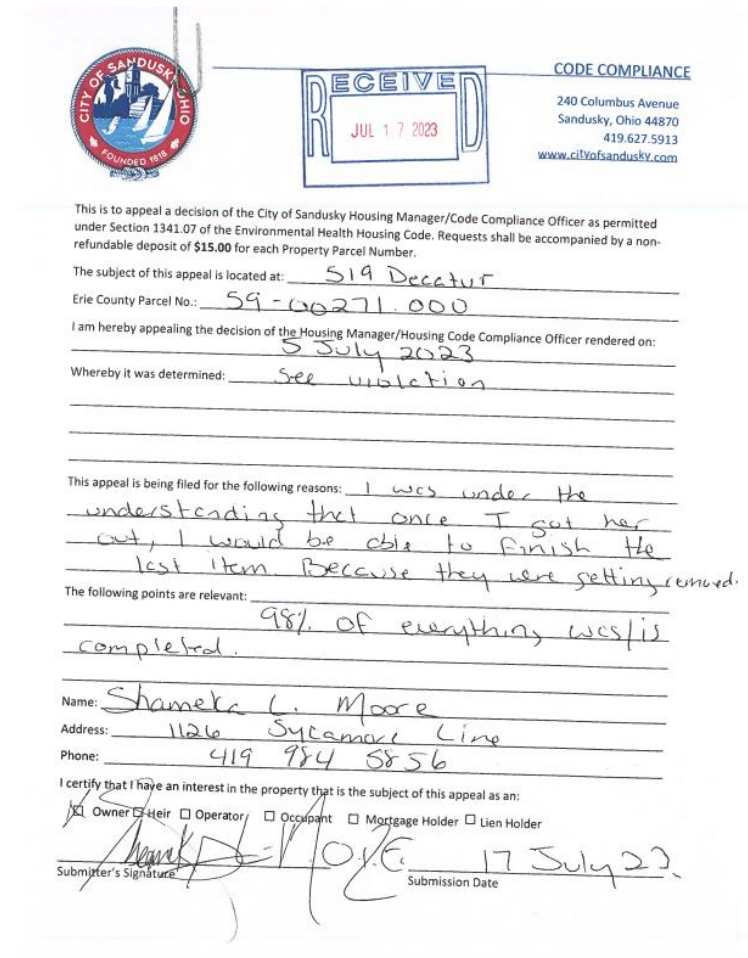 CITY OF SANDUSKY, OHIO
FOUNDED 1818
RECEIVED
JUL 17 2023
CODE COMPLIANCE
240 Columbus Avenue
Sandusky, Ohio 44870
419.627.5913
www.cityofsandusky.com
This is to appeal a decision of the City of Sandusky Housing Manager/Code Compliance Officer as permitted
under Section 1341.07 of the Environmental Health Housing Code. Requests shall be accompanied by a non-
refundable deposit of $15.00 for each Property Parcel Number.
The subject of this appeal is located at: 519 Decatur
Erie County Parcel No.: 59-00271.000
I am hereby appealing the decision of the Housing Manager/Housing Code Compliance Officer rendered on:
5 July 2023
Whereby it was determined: See violation
This appeal is being filed for the following reasons: I was under the
understanding that once I got her
out, I would be able to finish the
last item. Because they were getting removed.
The following points are relevant:
98% OF everything was/is
completed.
Name: Shameka L. Moore
Address: 1126 Sycamore Line
Phone: 419 984 5856
I certify that I have an interest in the property that is the subject of this appeal as an:
Owner Heir Operator Occupant Mortgage Holder Lien Holder
17 July 23.
Submitter's Signature Submission Date